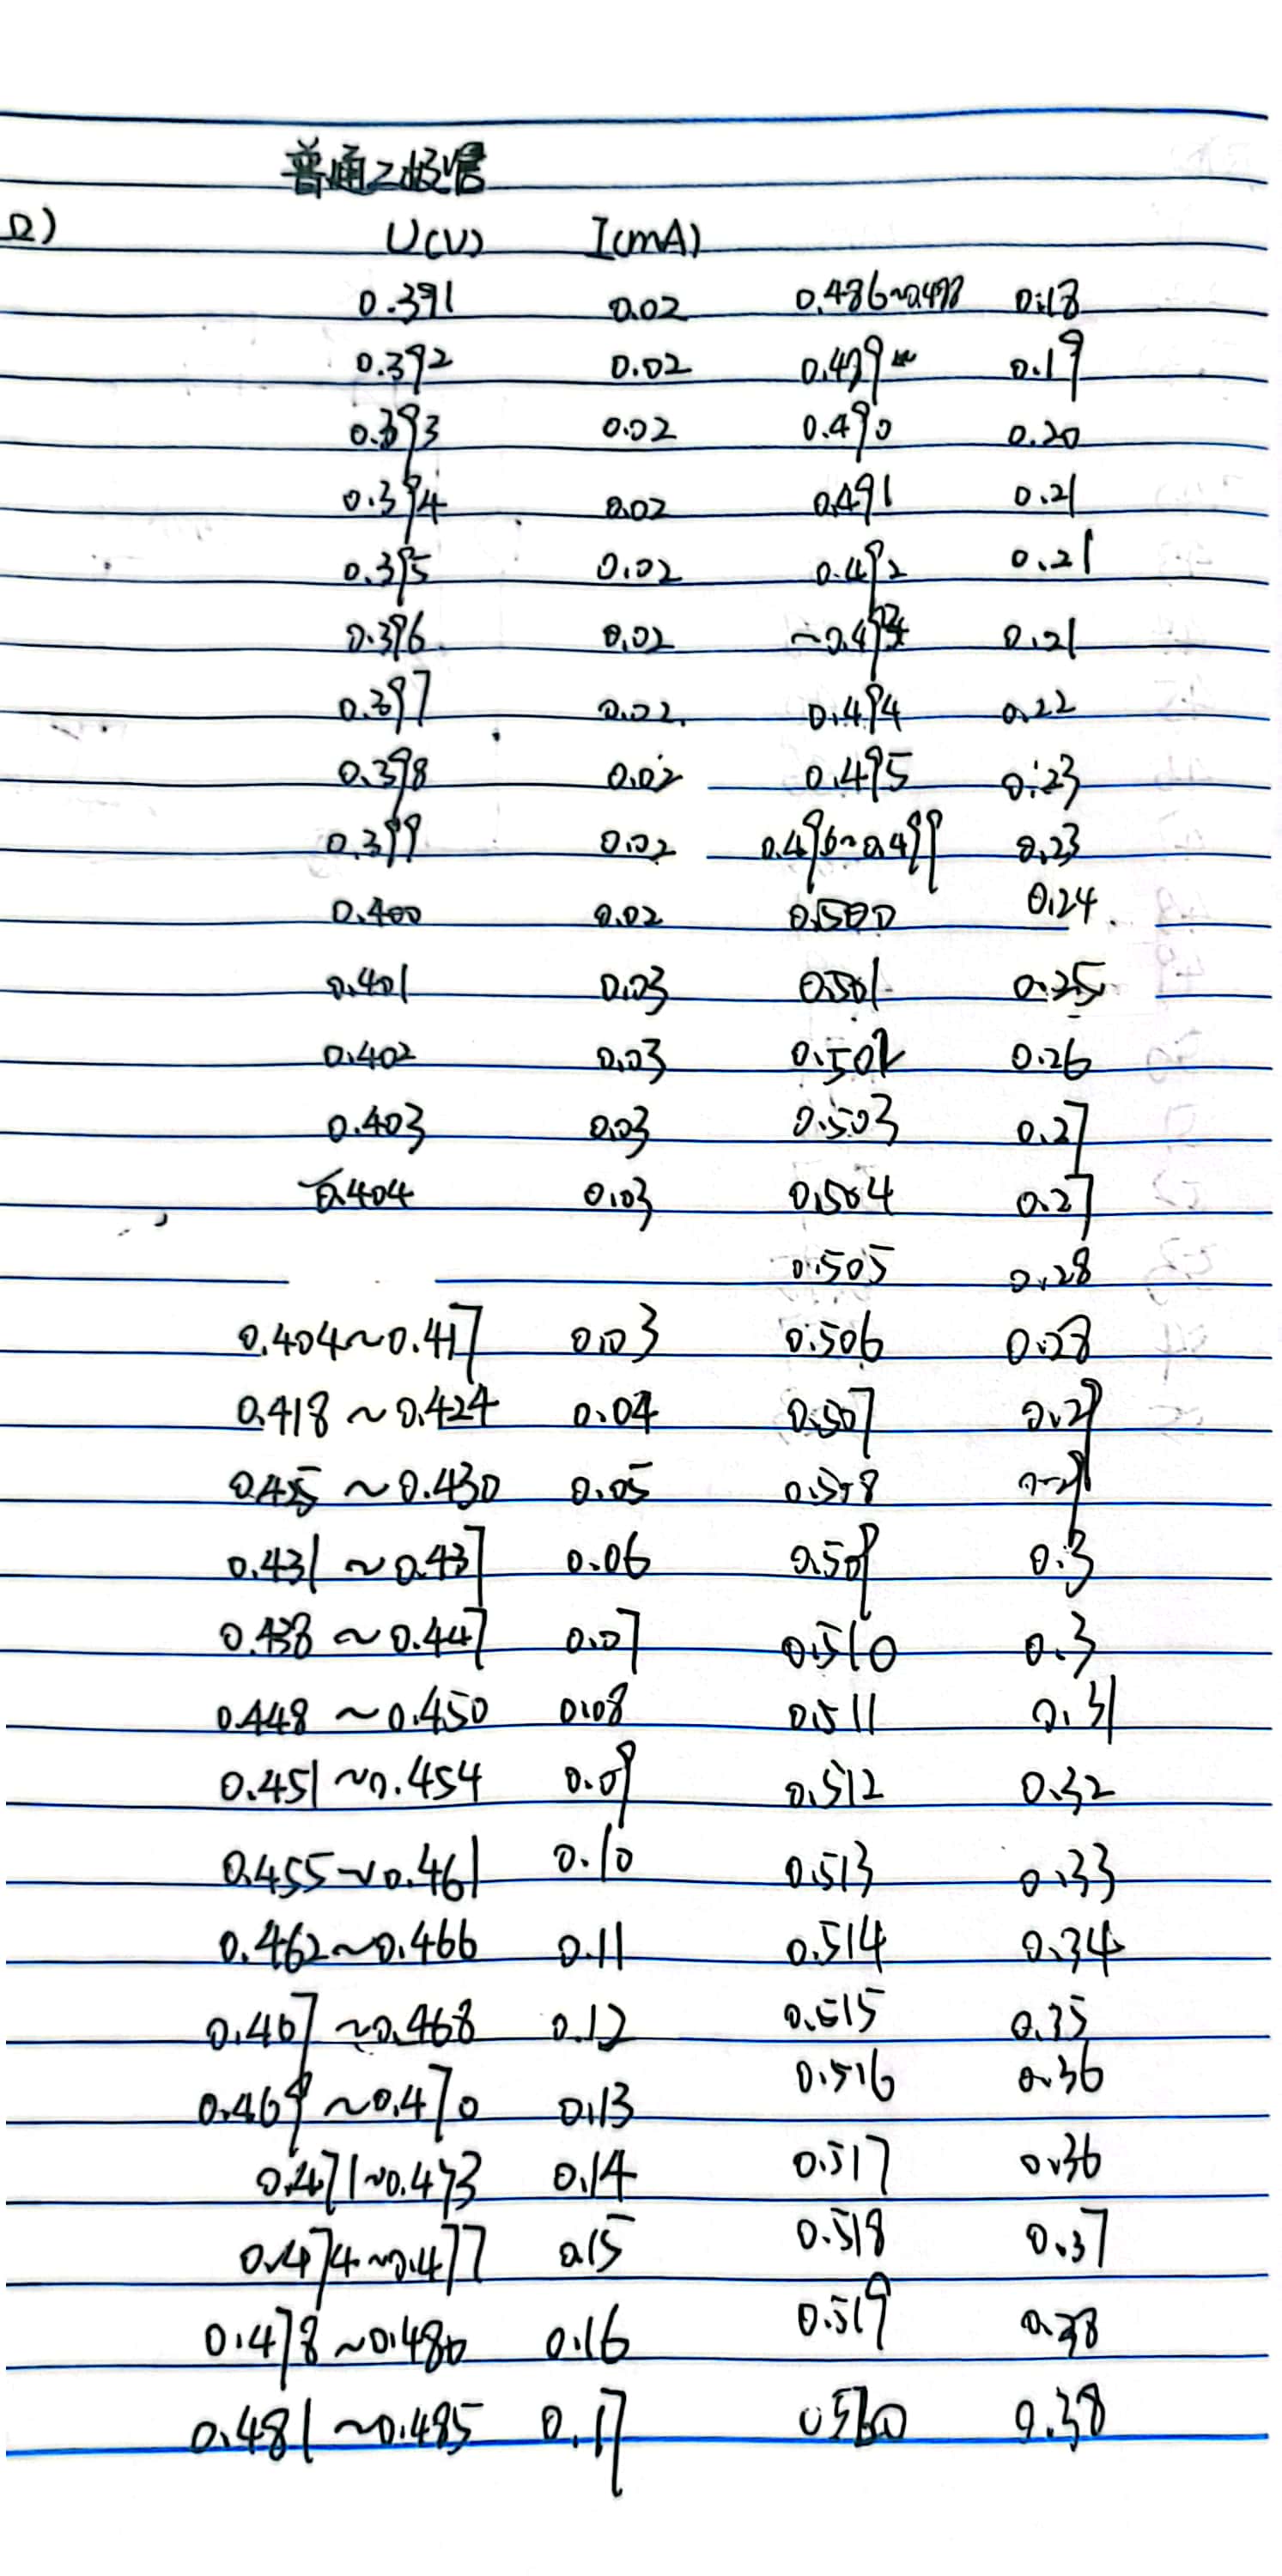 普通二极管
Ω)
U(V) I(mA)
0.391 0.02 0.486~0.498 0.18
0.392 0.02 0.499 0.19
0.393 0.02 0.490 0.20
0.394 0.02 0.491 0.21
0.395 0.02 0.492 0.21
0.396 0.02 0.21
0.397 0.02 0.494 0.22
0.398 0.02 0.495 0.23
0.399 0.02 0.496~0.499 0.23
0.400 0.02 0.500 0.24
0.401 0.03 0.501 0.25
0.402 0.03 0.502 0.26
0.403 0.03 0.503 0.27
0.404 0.03 0.504 0.27
0.505 0.28
0.404~0.417 0.03 0.506 0.28
0.418~0.424 0.04 0.507 0.29
0.425~0.430 0.05 0.508 0.29
0.431~0.437 0.06 0.509 0.3
0.438~0.447 0.07 0.510 0.3
0.448~0.450 0.08 0.511 0.31
0.451~0.454 0.09 0.512 0.32
0.455~0.461 0.10 0.513 0.33
0.462~0.466 0.11 0.514 0.34
0.467~0.468 0.12 0.515 0.35
0.469~0.470 0.13 0.516 0.36
0.471~0.473 0.14 0.517 0.36
0.474~0.477 0.15 0.518 0.37
0.478~0.480 0.16 0.519 0.38
0.481~0.485 0.17 0.38